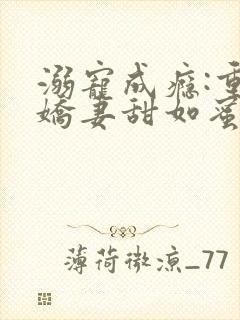 溺寵成癮:重
嬌妻甜如蜜
薄荷微涼_77